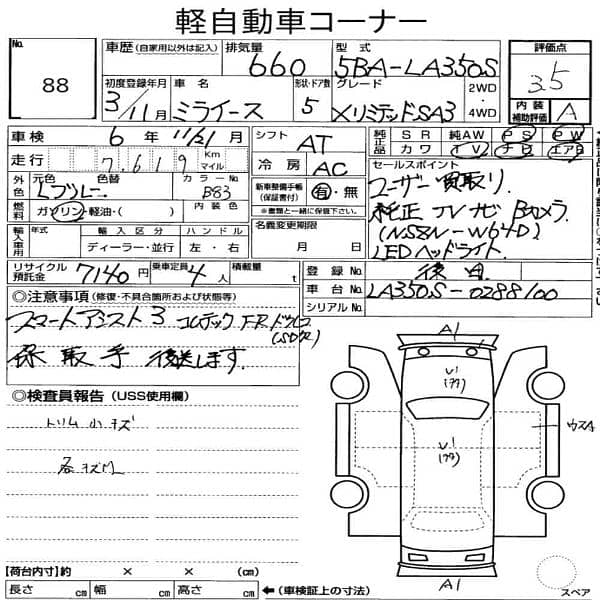 軽自動車コーナー
No.
88
車歴 (自家用以外は記入)
排気量
660
型式
5BA-LA350S
評価点
3.5
初度登録年月
3/11月
車名
ミライース
形状・ドア数
5
グレード
XリミテッドSA3
2WD
・
4WD
内装
補助評価
A
車検
6年11/21月
シフト
AT
純正品
SR
純AW
PS
PW
カワ
TV
ナビ
エアB
走行
7.619
Km
マイル
冷房
AC
セールスポイント
ユーザー買取り
純正TVナビ Bカメラ
(NSZN-W64D)
LEDヘッドライト
外色
元色
色替
カラーNo.
B83
燃料
ガソリン・軽油・( )
内装色
新車整備手帳
(保証書付)
有・無
※書類と一緒に保管して下さい。
輸入車用
年式
輸入区分
ハンドル
ディーラー・並行
左・右
名義変更期限
月 日
リサイクル
預託金
7140円
乗車定員
4人
積載量
t
登録No.
後日
車台No.
LA350S-0288100
シリアルNo.
◎注意事項 (修復・不具合箇所および状態等)
スマートアシスト3 コムテック F.Rドラレコ
(SD欠)
保取手後送します.
◎検査員報告 (USS使用欄)
トリム小キズ
各キズM
A1
U1
(アク)
U1
(アク)
ウスA
A1
スペア
【荷台内寸】約 × × (cm)
長さ cm 幅 cm 高さ cm ←(車検証上の寸法)